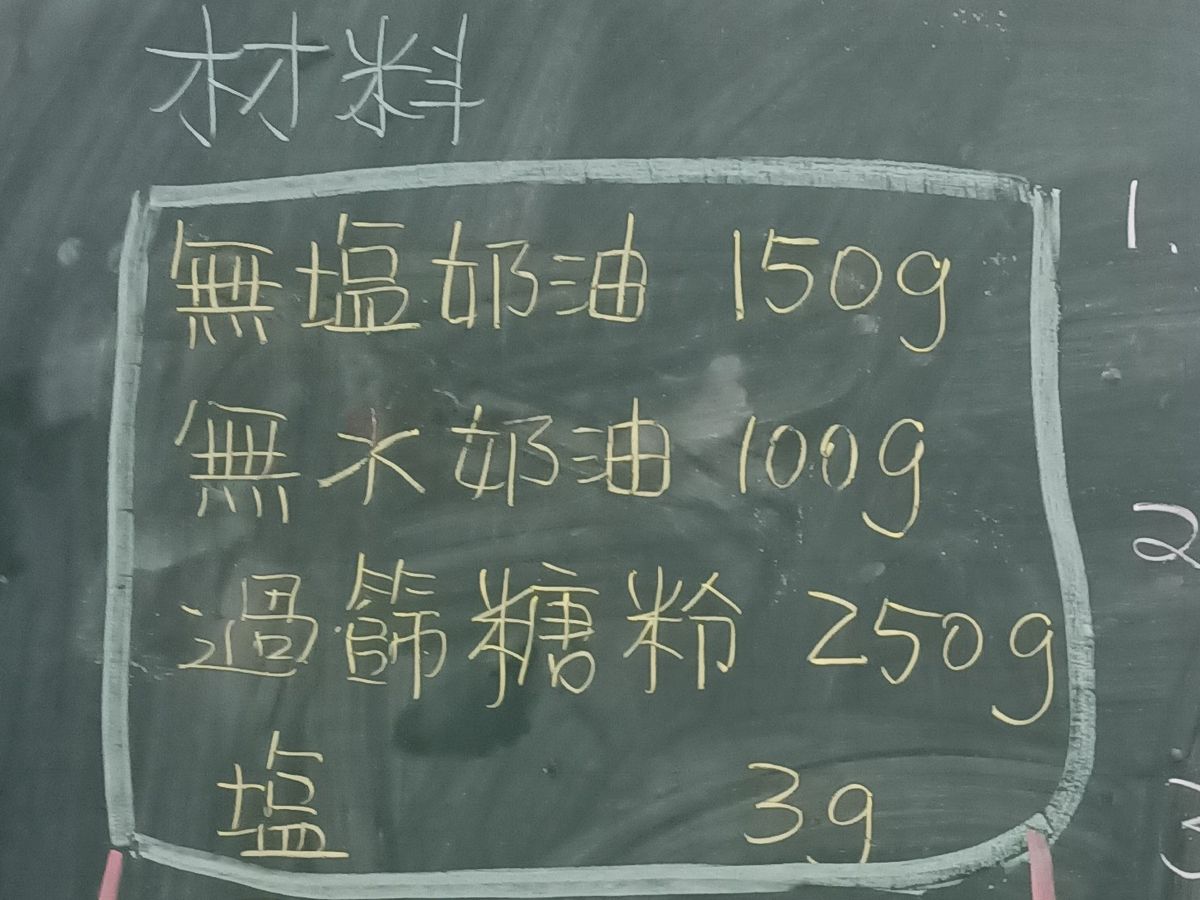 材料
無塩奶油 150g
無水奶油 100g
過篩糖粉 250g
塩 3g
1.
2
3